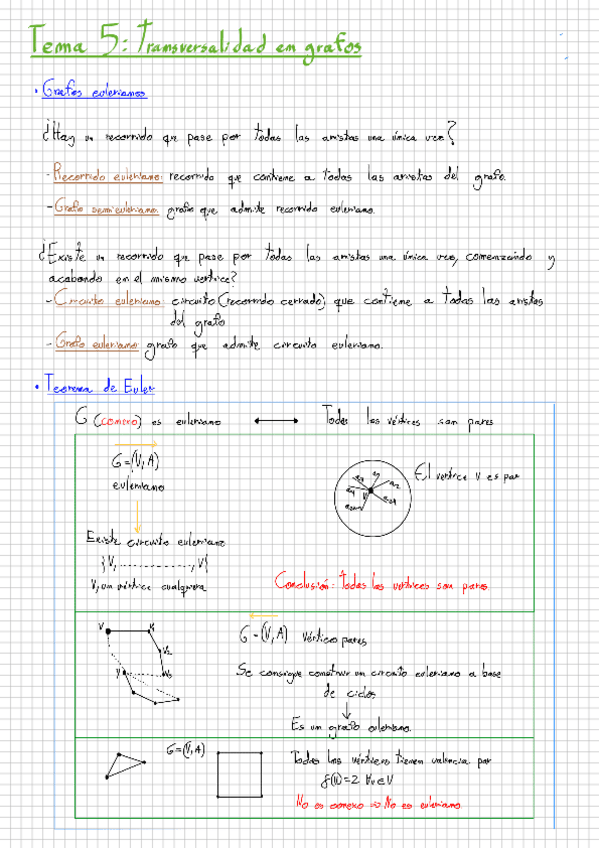 Tema 5: Transversalidad en grafos
• Grafos eulerianos
¿Hay un recorrido que pase por todas las aristas una única vez?
- Recorrido euleriano: recorrido que contiene a todas las aristas del grafo.
- Grafo semieuleriano: grafo que admite recorrido euleriano.
¿Existe un recorrido que pase por todas las aristas una única vez, comenzando y
acabando en el mismo vertice?
- Circuito euleriano: circuito (recorrido cerrado) que contiene a todas las aristas
del grafo
- Grafo euleriano: grafo que admite circuito euleriano.
• Teorema de Euler
G (conexo) es euleriano ⟷ Todos los vértices son pares
G=(V,A)
euleriano
El vertice V es par
Existe circuito euleriano
{V, ............, V}
V, un vértice cualquiera
Conclusión: todos los vertices son pares
G=(V,A) vértices pares
Se consigue construir un circuito euleriano a base
de ciclos
↓
Es un grafo euleriano.
G=(V,A)
Todos los vértices tienen valencia par
No es conexo ⇒ No es euleriano